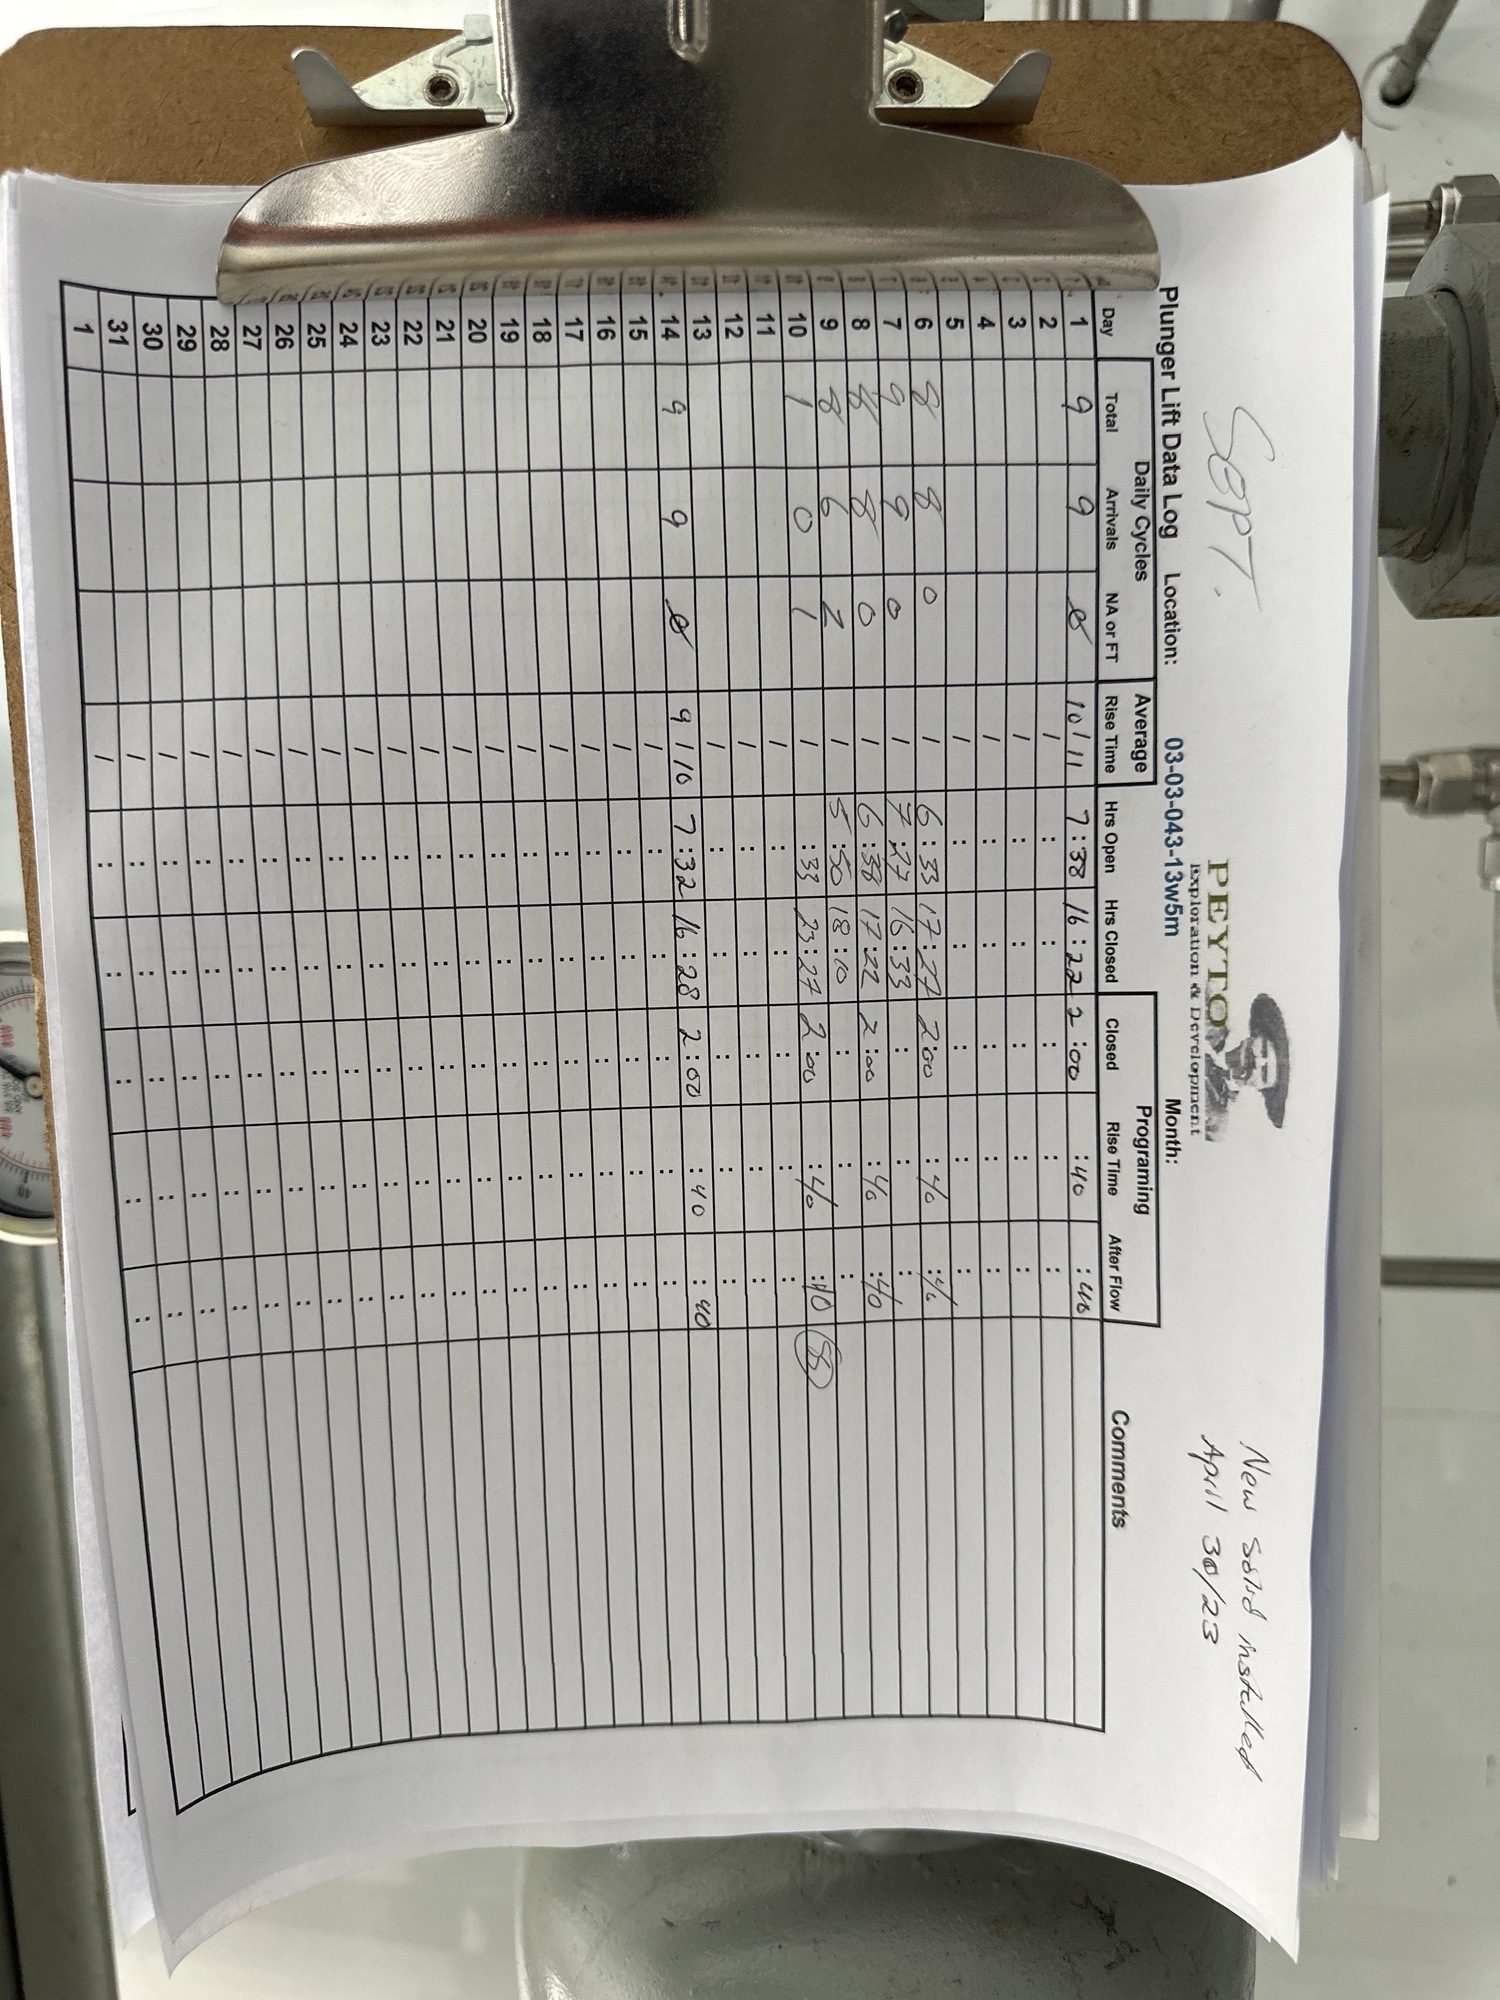 SEPT.
New solid installed
April 30/23
PEYTO
Exploration & Development
Plunger Lift Data Log Location: 03-03-043-13w5m Month:
Daily Cycles Average Programing
Day Total Arrivals NA or FT Rise Time Hrs Open Hrs Closed Closed Rise Time After Flow Comments
1 9 9 0 10 / 11 7:38 16:22 2:00 :40 :40
2 / : : : : :
3 / : : : : :
4 / : : : : :
5 / : : : : :
6 8 8 0 / 6:33 17:27 2:00 :40 :40
7 9 9 0 / 7:27 16:33 : : :
8 8 8 0 / 6:38 17:22 2:00 :40 :40
9 8 6 2 / 5:50 18:10 : : :
10 1 0 1 / :33 23:27 2:00 :40 :10
11 / : : : : :
12 / : : : : :
13 / : : : : :
14 9 9 0 9 / 10 7:32 16:28 2:00 :40 :40
15 / : : : : :
16 / : : : : :
17 / : : : : :
18 / : : : : :
19 / : : : : :
20 / : : : : :
21 / : : : : :
22 / : : : : :
23 / : : : : :
24 / : : : : :
25 / : : : : :
26 / : : : : :
27 / : : : : :
28 / : : : : :
29 / : : : : :
30 / : : : : :
31 / : : : : :
1 / : : : : :